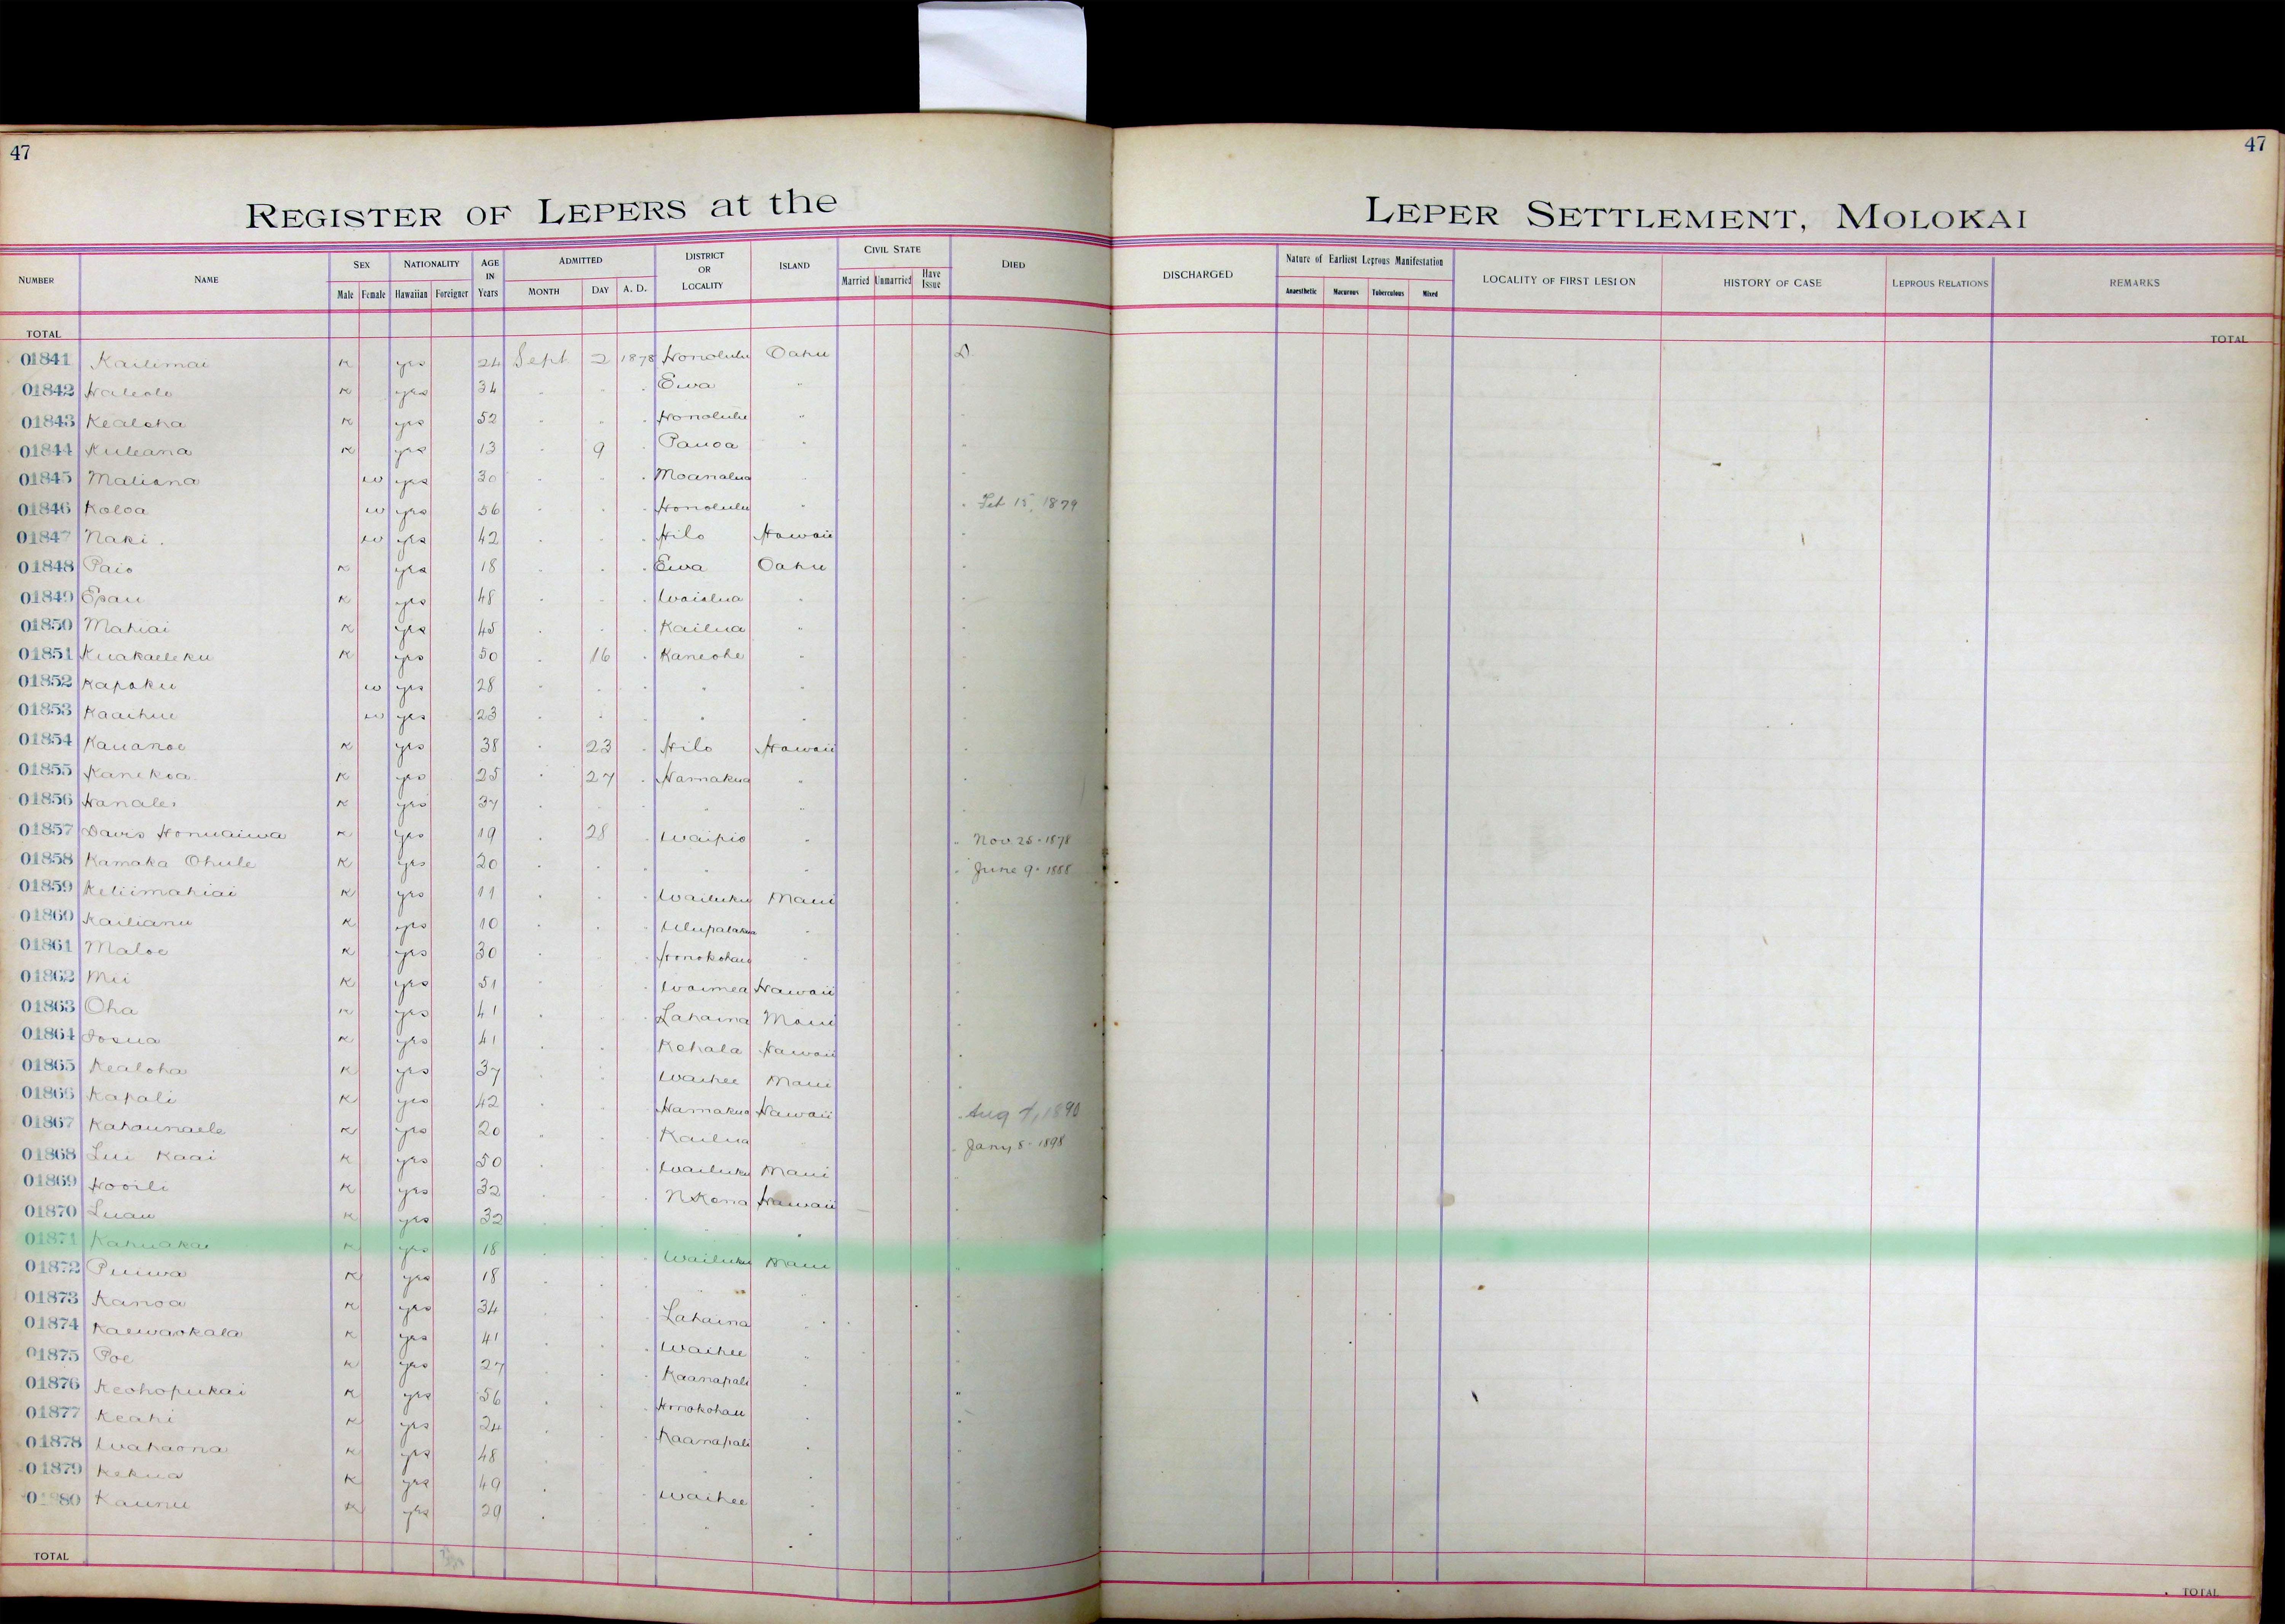 47
47
REGISTER OF LEPERS at the LEPER SETTLEMENT, MOLOKAI
NUMBER NAME SEX NATIONALITY AGE IN Years ADMITTED DISTRICT OR LOCALITY ISLAND CIVIL STATE DIED DISCHARGED Nature of Earliest Leprous Manifestation LOCALITY OF FIRST LESION HISTORY OF CASE LEPROUS RELATIONS REMARKS
Male Female Hawaiian Foreigner MONTH DAY A. D. Married Unmarried Have Issue Anaesthetic Macurous Tuberculous Mixed
TOTAL TOTAL
01841 Kailimai K yes 24 Sept 2 1878 Honolulu Oahu D
01842 Haleole K yes 34 " " " Ewa "
01843 Kealoha K yes 52 " " " Honolulu "
01844 Kuleana K yes 13 " 9 " Pauoa "
01845 Maliana w yes 30 " " " Moanalua "
01846 Koloa w yes 56 " " " Honolulu " " Feb 15, 1879
01847 Naki w yes 42 " " " Hilo Hawaii "
01848 Paio K yes 18 " " " Ewa Oahu "
01849 Epau K yes 48 " " " Waialua " "
01850 Mahiai K yes 45 " " " Kailua " "
01851 Kuakaeleku K yes 50 " 16 " Kaneohe " "
01852 Kapoku w yes 28 " " " " " "
01853 Kaaihue w yes 23 " " " " " "
01854 Kauanoe K yes 38 " 23 " Hilo Hawaii "
01855 Kanekoa K yes 25 " 27 " Hamakua " "
01856 Hanalei K yes 37 " " " " " "
01857 Davis Honuaiwa K yes 19 " 28 " Waipio " " Nov 25 - 1878
01858 Kamaka Ohule K yes 20 " " " " " " June 9 - 1888
01859 Keliimahiai K yes 11 " " " Wailuku Maui "
01860 Kailianu K yes 10 " " " Ulupalakua " "
01861 Maloe K yes 30 " " " Honokohau " "
01862 Mii K yes 51 " " " Waimea Hawaii "
01863 Oha K yes 41 " " " Lahaina Maui "
01864 Iosua K yes 41 " " " Kohala Hawaii "
01865 Kealoha K yes 37 " " " Waihee Maui "
01866 Kapali K yes 42 " " " Hamakua Hawaii " Aug 7, 1890
01867 Kahaunaele K yes 20 " " " Kailua " Jany 8 - 1898
01868 Lui Kaai K yes 50 " " " Wailuku Maui "
01869 Hooili K yes 32 " " " N Kona Hawaii "
01870 Luau K yes 32 " " " " " "
01871 Kahuakai K yes 18 " " " Wailuku Maui "
01872 Puiwa K yes 18 " " " " " "
01873 Kanoa K yes 34 " " " Lahaina " "
01874 Kaewaokala K yes 41 " " " Waihee " "
01875 Poe K yes 27 " " " Kaanapali " "
01876 Keohopukai K yes 56 " " " Honokohau " "
01877 Keahi K yes 24 " " " Kaanapali " "
01878 Wahaona K yes 48 " " " " " "
01879 Kekua K yes 49 " " " Waihee " "
01880 Kaunu K yes 29 " " " " " "
TOTAL TOTAL